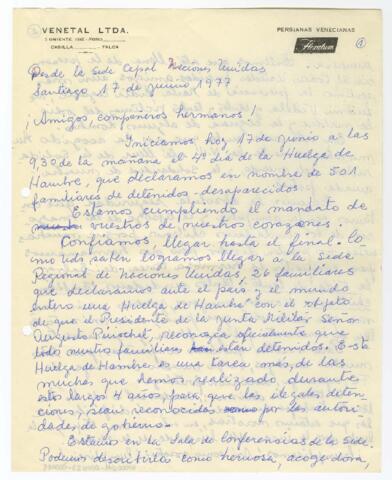 VENETAL LTDA.
PERSIANAS VENECIANAS
CASILLA TALCA
Desde la Sede Cepal Naciones Unidas
Santiago 17 de junio 1977
¡Amigos, compañeros hermanos!
Iniciamos hoy 17 de junio a las
9.30 de la mañana el 4º día de la Huelga de
Hambre, que declaramos en nombre de 501
familiares de detenidos-desaparecidos
Estamos cumpliendo el mandato de
vuestros de nuestros corazones.
Confiamos, llegar hasta el final. Co
mo uds saben logramos llegar a la Sede
Regional de Naciones Unidas, 26 familiares
que declaramos ante el país y el mundo
entero una "Huelga de Hambre" con el objeto
de que el Presidente de la Junta Militar Señor
Augusto Pinochet, reconozca oficialmente que
todos nuestros familiares están detenidos. Esta
Huelga de Hambre es una tarea más, de las
muchas que hemos realizado durante
estos largos 4 años, para que las ilegales deten-
ciones, sean reconocidas por las autori
dades de gobierno.
Estamos en la Sala de Conferencias de la Sede.
Podemos describirla como hermosa, acogedora,